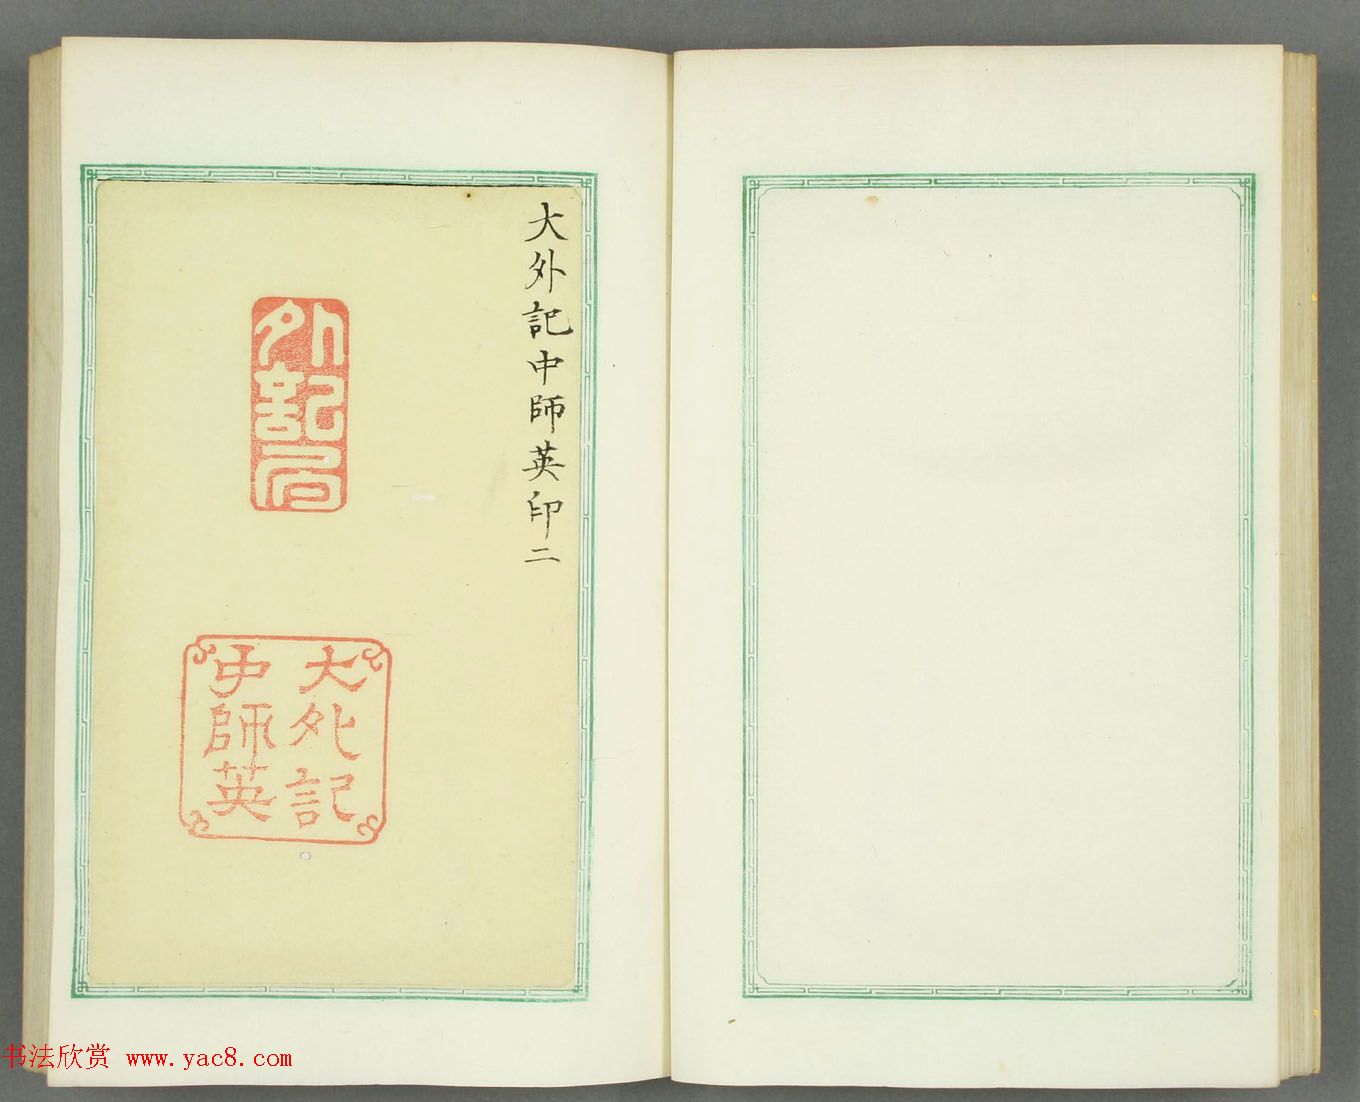 大外記中師英印二
外記局
大外記
中師英
书法欣赏 www.yac8.com